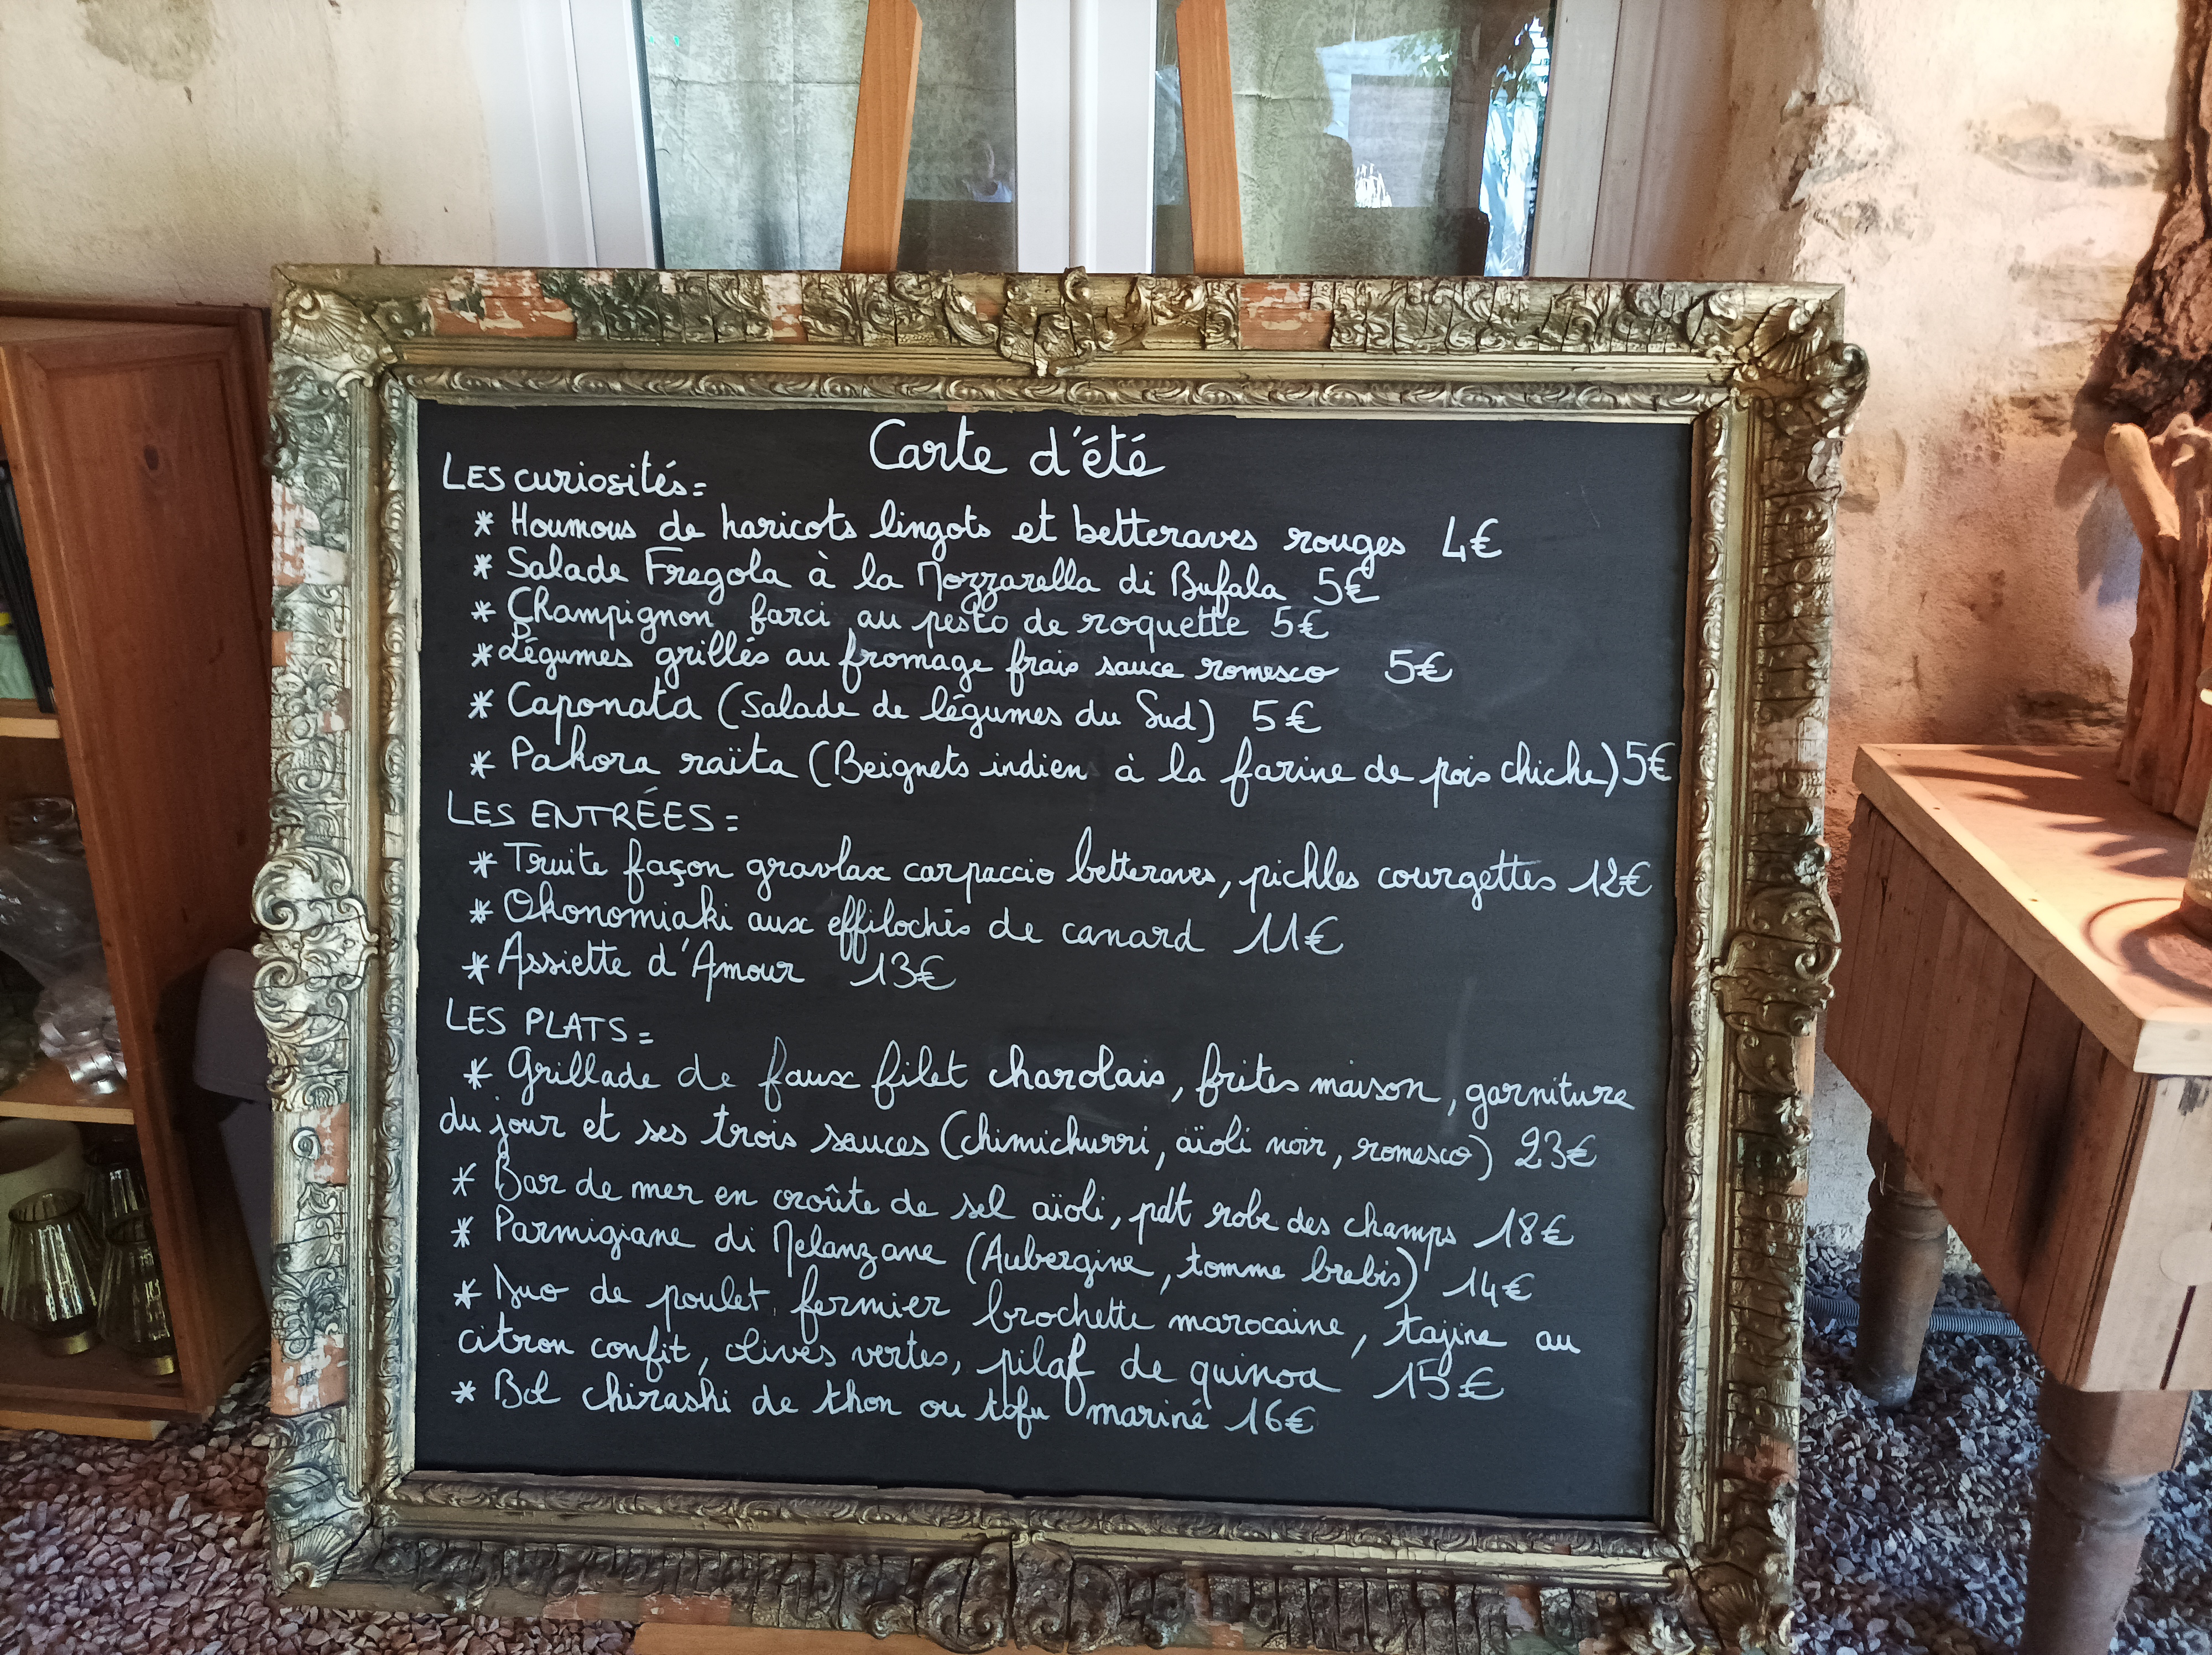 Carte d'été
LES curiosités=
* Houmous de haricots lingots et betteraves rouges 4€
* Salade Fregola à la Mozzarella di Bufala 5€
* Champignon farci au pesto de roquette 5€
* Légumes grillés au fromage frais sauce romesco 5€
* Caponata (Salade de légumes du Sud) 5€
* Pakora raïta (Beignets indien à la farine de pois chiche) 5€
LES ENTRÉES=
* Truite façon gravlax carpaccio betteraves, pickles courgettes 12€
* Okonomiaki aux effilochés de canard 11€
* Assiette d'Amour 13€
LES PLATS=
* Grillade de faux filet charolais, frites maison, garniture
du jour et ses trois sauces (chimichurri, aïoli noir, romesco) 23€
* Bar de mer en croûte de sel aïoli, pdt robe des champs 18€
* Parmigiane di Melanzane (Aubergine, tomme brebis) 14€
* Duo de poulet fermier brochette marocaine, tajine au
citron confit, olives vertes, pilaf de quinoa 15€
* Bol chirashi de thon ou tofu mariné 16€